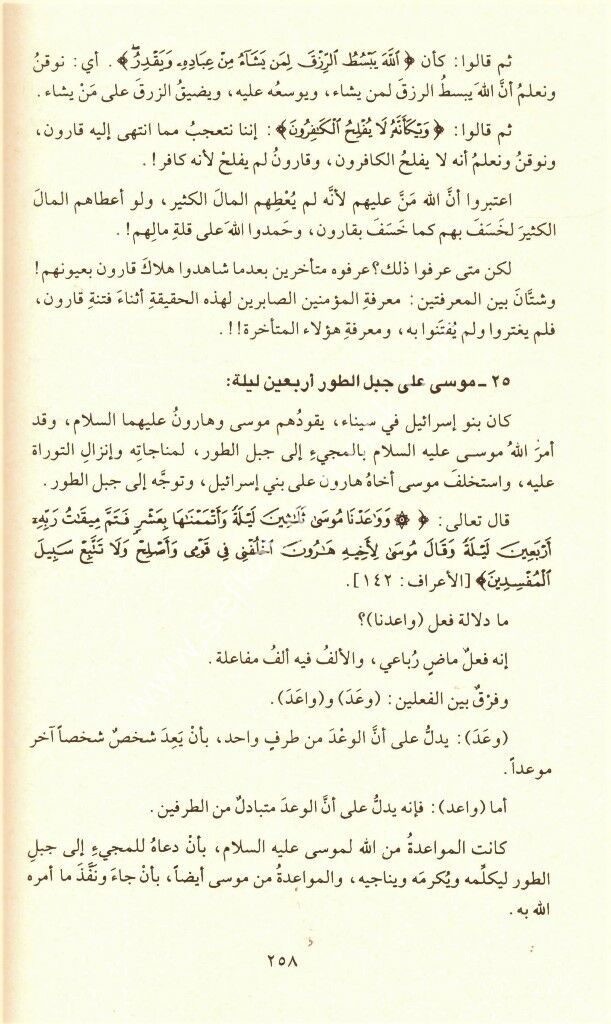 ثم قالوا: كأن ﴿ ٱللَّهَ يَبْسُطُ ٱلرِّزْقَ لِمَن يَشَآءُ مِنْ عِبَادِهِۦ وَيَقْدِرُ ﴾. أي: نوقنُ
ونعلمُ أنَّ اللهَ يبسطُ الرزقَ لمن يشاء، ويوسعُه عليه، ويضيقُ الزرقَ على مَنْ يشاء.
ثم قالوا: ﴿ وَيْكَأَنَّهُۥ لَا يُفْلِحُ ٱلْكَٰفِرُونَ ﴾: إننا نتعجبُ مما انتهى إليه قارون،
ونوقنُ ونعلمُ أنه لا يفلحُ الكافرون، وقارونُ لم يفلحْ لأنه كافر!.
اعتبروا أنَّ الله مَنَّ عليهم لأنَّه لم يُعْطِهم المالَ الكثير، ولو أعطاهم المالَ
الكثيرَ لخَسَفَ بهم كما خَسَفَ بقارون، وحَمدوا اللهَ على قلةِ مالِهم!.
لكن متى عرفوا ذلك؟ عرفوه متأخرين بعدما شاهدوا هلاكَ قارون بعيونهم!
وشتَّانَ بين المعرفتين: معرفةِ المؤمنين الصابرين لهذه الحقيقةِ أثناءَ فتنةِ قارون،
فلم يغتروا ولم يُفتَنوا به، ومعرفةِ هؤلاء المتأخرة!!.
٢٥ ـ موسى على جبل الطور أربعين ليلة:
كان بنو إسرائيل في سيناء، يقودُهم موسى وهارونُ عليهما السلام، وقد
أمرَ اللهُ موسى عليه السلام بالمجيءِ إلى جبل الطور، لمناجاتِه وإنزالِ التوراة
عليه، واستخلفَ موسى أخاهُ هارون على بني إسرائيل، وتوجَّه إلى جبل الطور.
قال تعالى: ﴿ ۞ وَوَٰعَدْنَا مُوسَىٰ ثَلَٰثِينَ لَيْلَةً وَأَتْمَمْنَٰهَا بِعَشْرٍ فَتَمَّ مِيقَٰتُ رَبِّهِۦٓ
أَرْبَعِينَ لَيْلَةً وَقَالَ مُوسَىٰ لِأَخِيهِ هَٰرُونَ ٱخْلُفْنِي فِي قَوْمِي وَأَصْلِحْ وَلَا تَتَّبِعْ سَبِيلَ
ٱلْمُفْسِدِينَ ﴾ [الأعراف: ١٤٢].
ما دلالة فعل (واعدنا)؟
إنه فعلٌ ماضٍ رُباعي، والألفُ فيه ألفُ مفاعلة.
وفرْقٌ بين الفعلين: (وعَدَ) و(واعَدَ).
(وعَدَ): يدلُّ على أنَّ الوعْدَ من طرفٍ واحد، بأنْ يَعِدَ شخصٌ شخصاً آخر
موعداً.
أما (واعد): فإنه يدلُّ على أنَّ الوعدَ متبادلٌ من الطرفين.
كانت المواعدةُ من الله لموسى عليه السلام، بأنْ دعاهُ للمجيءِ إلى جبلِ
الطور ليكلِّمه ويُكرمَه ويناجيه، والمواعدةُ من موسى أيضاً، بأنْ جاءَ ونَفَّذَ ما أمره
الله به.
٢٥٨